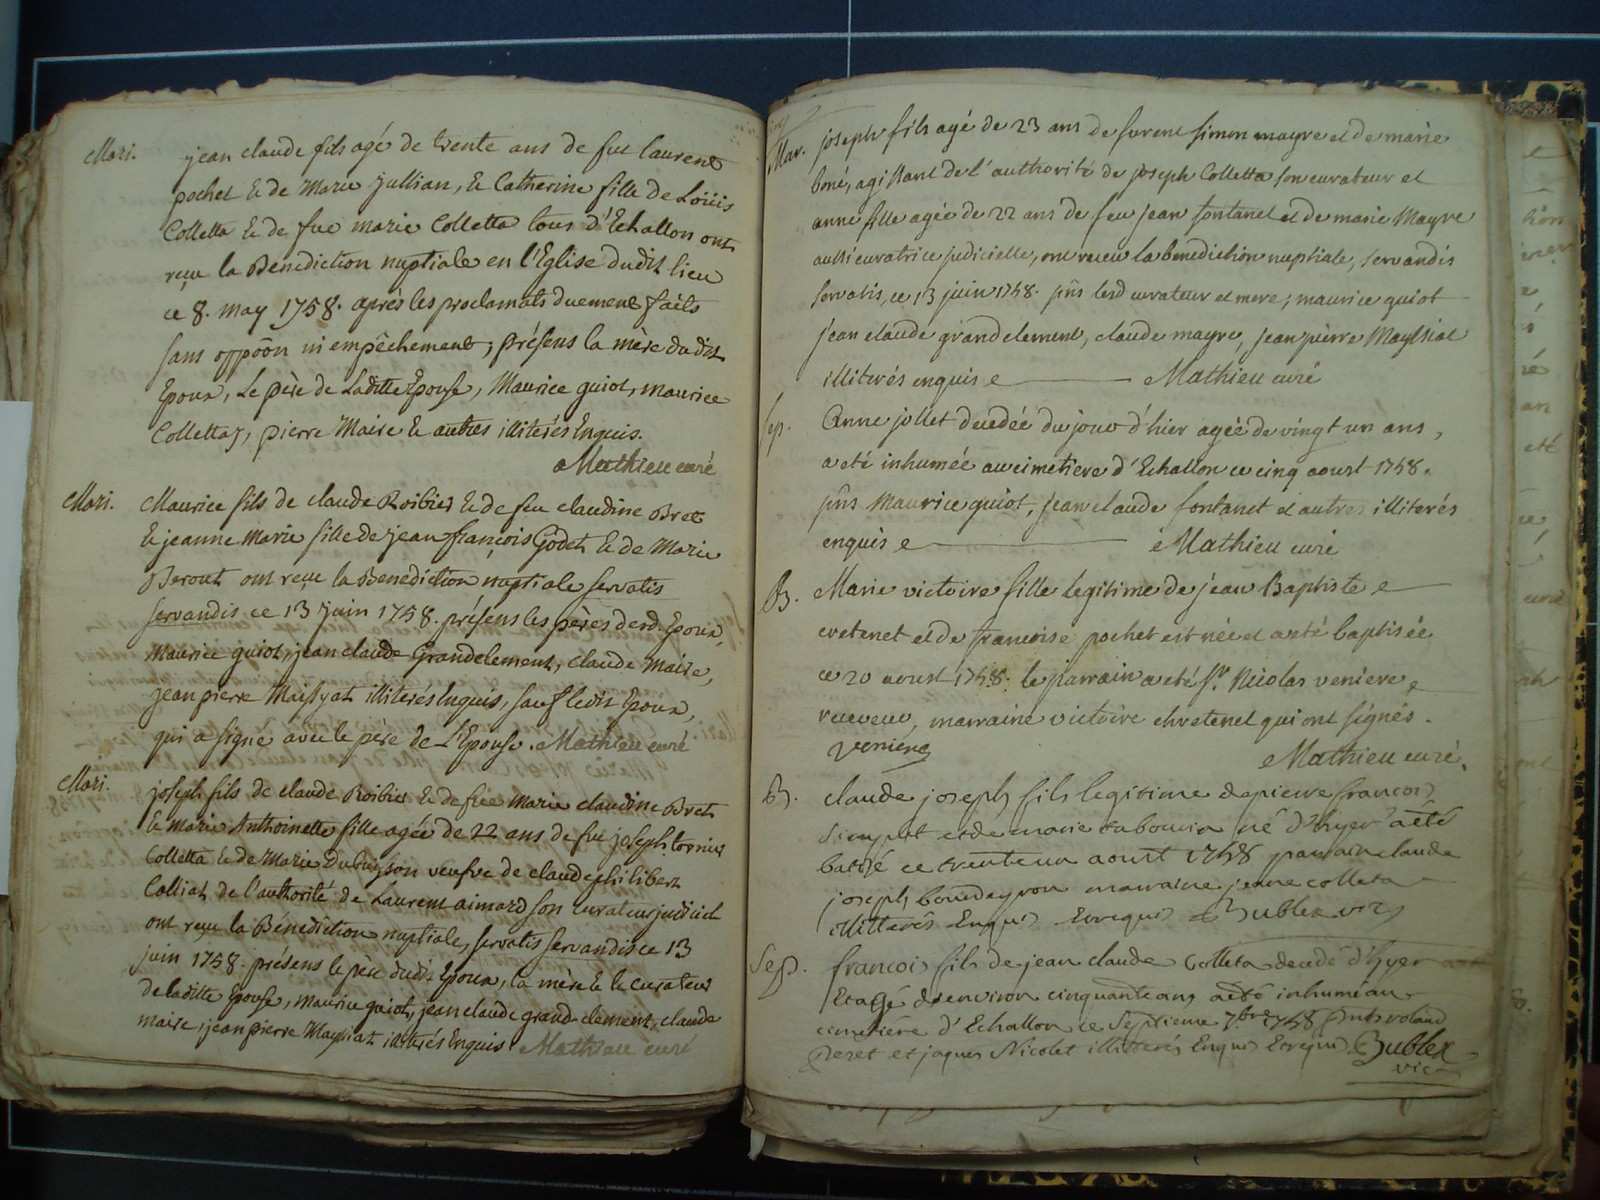 Mari. jean claude fils agé de trente ans de fut laurent
pochet & de Marie jullian, & Catherine fille de Loüis
Colletta & de fue marie Colletta tous d'Echallon ont
reçu la Benediction nuptiale en l'Eglise dudit lieu
ce 8. may 1758. après les proclamats duement faits
sans oppôon ni empêchement; présens la mère dudit
Epoux, Le père de Laditte Epouse, Maurice guiot, maurice
Collettaz, pierre Maire & autres illiterés Enquis.
Mathieu curé
Mari. Maurice fils de claude Roibier & de feu claudine Bret
& jeanne Marie fille de jean françois Godet & de Marie
Berout ont reçu la Benediction nuptiale servatis
servandis ce 13 juin 1758. présens les pères desd. Epoux,
Maurice guiot, jean claude Grandclement, claude Maire,
jean pierre Maissyat illiterés Enquis, sauf ledit Epoux,
qui a signé avec le père de L'Epouse. Mathieu curé
Mari. joseph fils de claude Roibier & de fue Marie claudine Bret
& Marie Anthoinette fille agée de 22 ans de fut joseph tornier
Colletta & de Marie Dubuisson veufve de claude philibert
Colliat de l'authorité de Laurent aimard son curateur judiciel
ont reçu la Bénédiction nuptiale, servatis servandis ce 13
juin 1758. présens le père dudit Epoux, la mère & le curateur
de laditte Epouse, maurice guiot, jean claude grand-clement, claude
maire, jean pierre Mayssiat illiterés Enquis Mathieu curé
Mar. joseph fils agé de 23 ans de furent simon mayre et de marie
boné, agissant de l'authorité de joseph Colletta son curateur et
anne fille agée de 22 ans de feu jean fontanet et de marie Mayre
aussi curatrice judicielle, ont receu la benediction nuptiale, servandis
servatis, ce 13 juin 1758. pñs lesd curateur et mere; maurice guiot
jean claude grandclement, claude mayre, jean pierre Mayssiat
illiterés enquis Mathieu curé
Sep. Anne jollet decedée du jour d'hier agée de vingt un ans,
a eté inhumée au cimetiere d'Echallon ce cinq aoust 1758.
pñs Maurice guiot, jean claude fontanet et autres illiterés
enquis Mathieu curé
B. Marie victoire fille legitime de jean Baptiste
cretenet et de françoise pochet est née et a eté baptisée
ce 20 aoust 1758. le parrain a eté Sr. Nicolas veniere
receveur, marraine victoire chretenet qui ont signés.
Veniere
Mathieu curé.
B. claude joseph fils legitime de pierre francois
et de marie né d'hyer a été
batisé ce trente un aoust 1758 parrain claude
joseph marraine jeanne colleta
illitterés Enquis Et requis Bublex vic
Sep. francois fils de jean claude Colleta decedé d'hyer
Et agé denviron cinquante ans a eté inhumé au
cimetiére d'Echallon ce Septieme 7.bre 1758 pnts
peret et jaques Nicolet illitterés Enquis Et requis. Bublex
vic